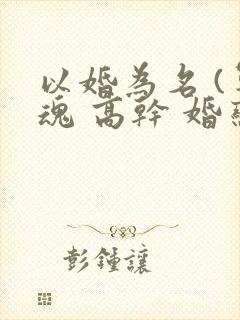 以婚為名（
魂 高幹 婚
彭鍾讓